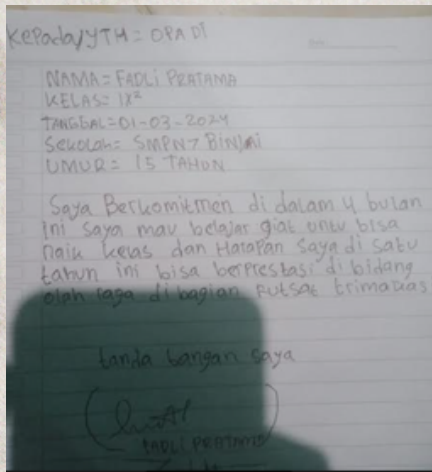 Kepada/YTH = OPA DI
NAMA = FADLI PRATAMA
KELAS = IX²
TANGGAL = 01-03-2024
Sekolah = SMPN 7 BINJAI
UMUR = 15 TAHUN
Saya Berkomitmen di dalam 4 bulan
ini saya mau belajar giat untu bisa
naik kelas dan Harapan saya di satu
tahun ini bisa berprestasi di bidang
olah raga di bagian Futsal trimakas
tanda tangan saya
FADLI PRATAMA